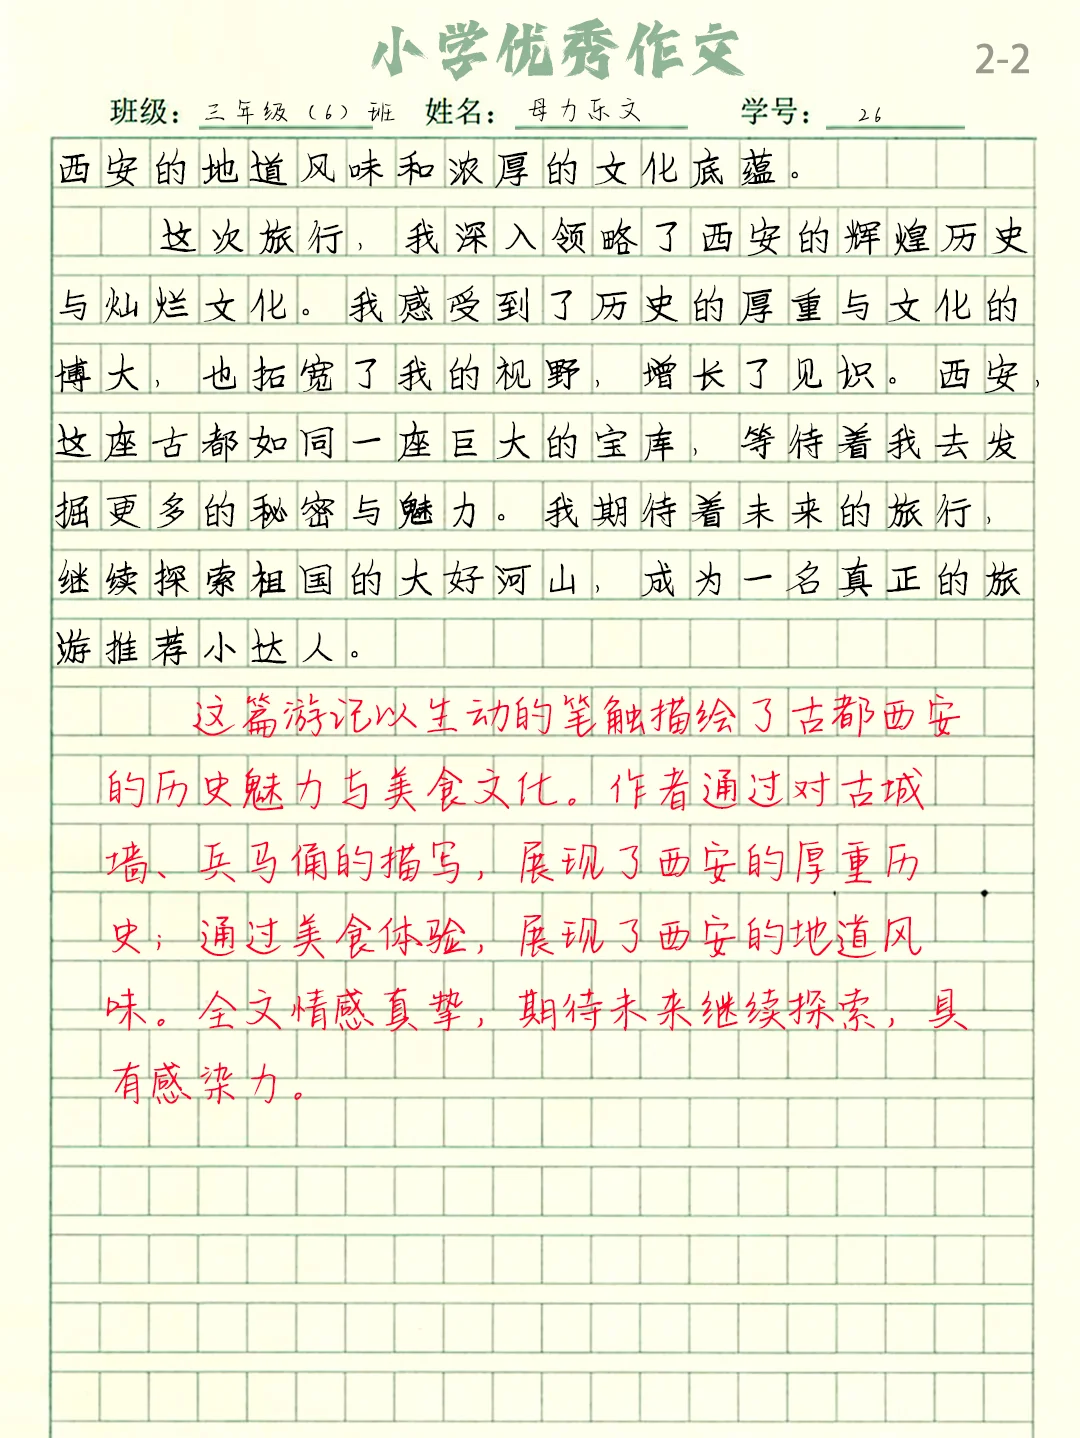 小学优秀作文
2-2
班级：三年级（6）班 姓名：母力乐文 学号：26
西安的地道风味和浓厚的文化底蕴。
这次旅行，我深入领略了西安的辉煌历史
与灿烂文化。我感受到了历史的厚重与文化的
博大，也拓宽了我的视野，增长了见识。西安，
这座古都如同一座巨大的宝库，等待着我去发
掘更多的秘密与魅力。我期待着未来的旅行，
继续探索祖国的大好河山，成为一名真正的旅
游推荐小达人。
这篇游记以生动的笔触描绘了古都西安
的历史魅力与美食文化。作者通过对古城
墙、兵马俑的描写，展现了西安的厚重历
史；通过美食体验，展现了西安的地道风
味。全文情感真挚，期待未来继续探索，具
有感染力。